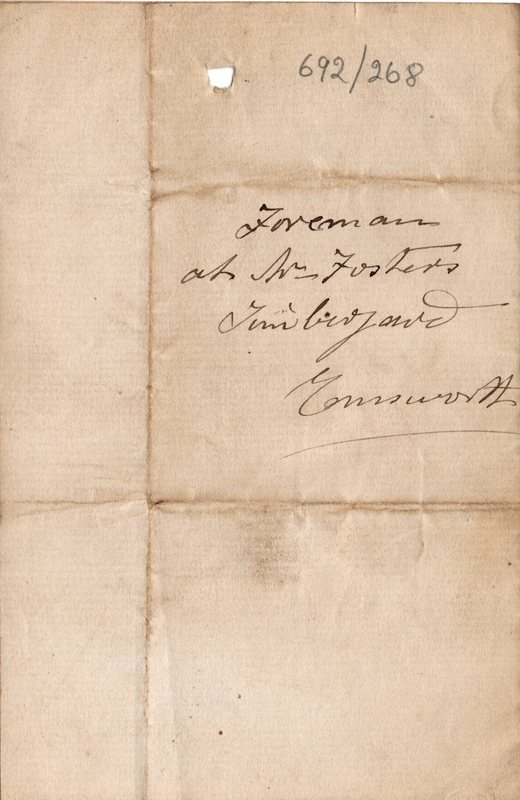 692/268
Foreman
at Mr Fosters
Timberyard
Emsworth